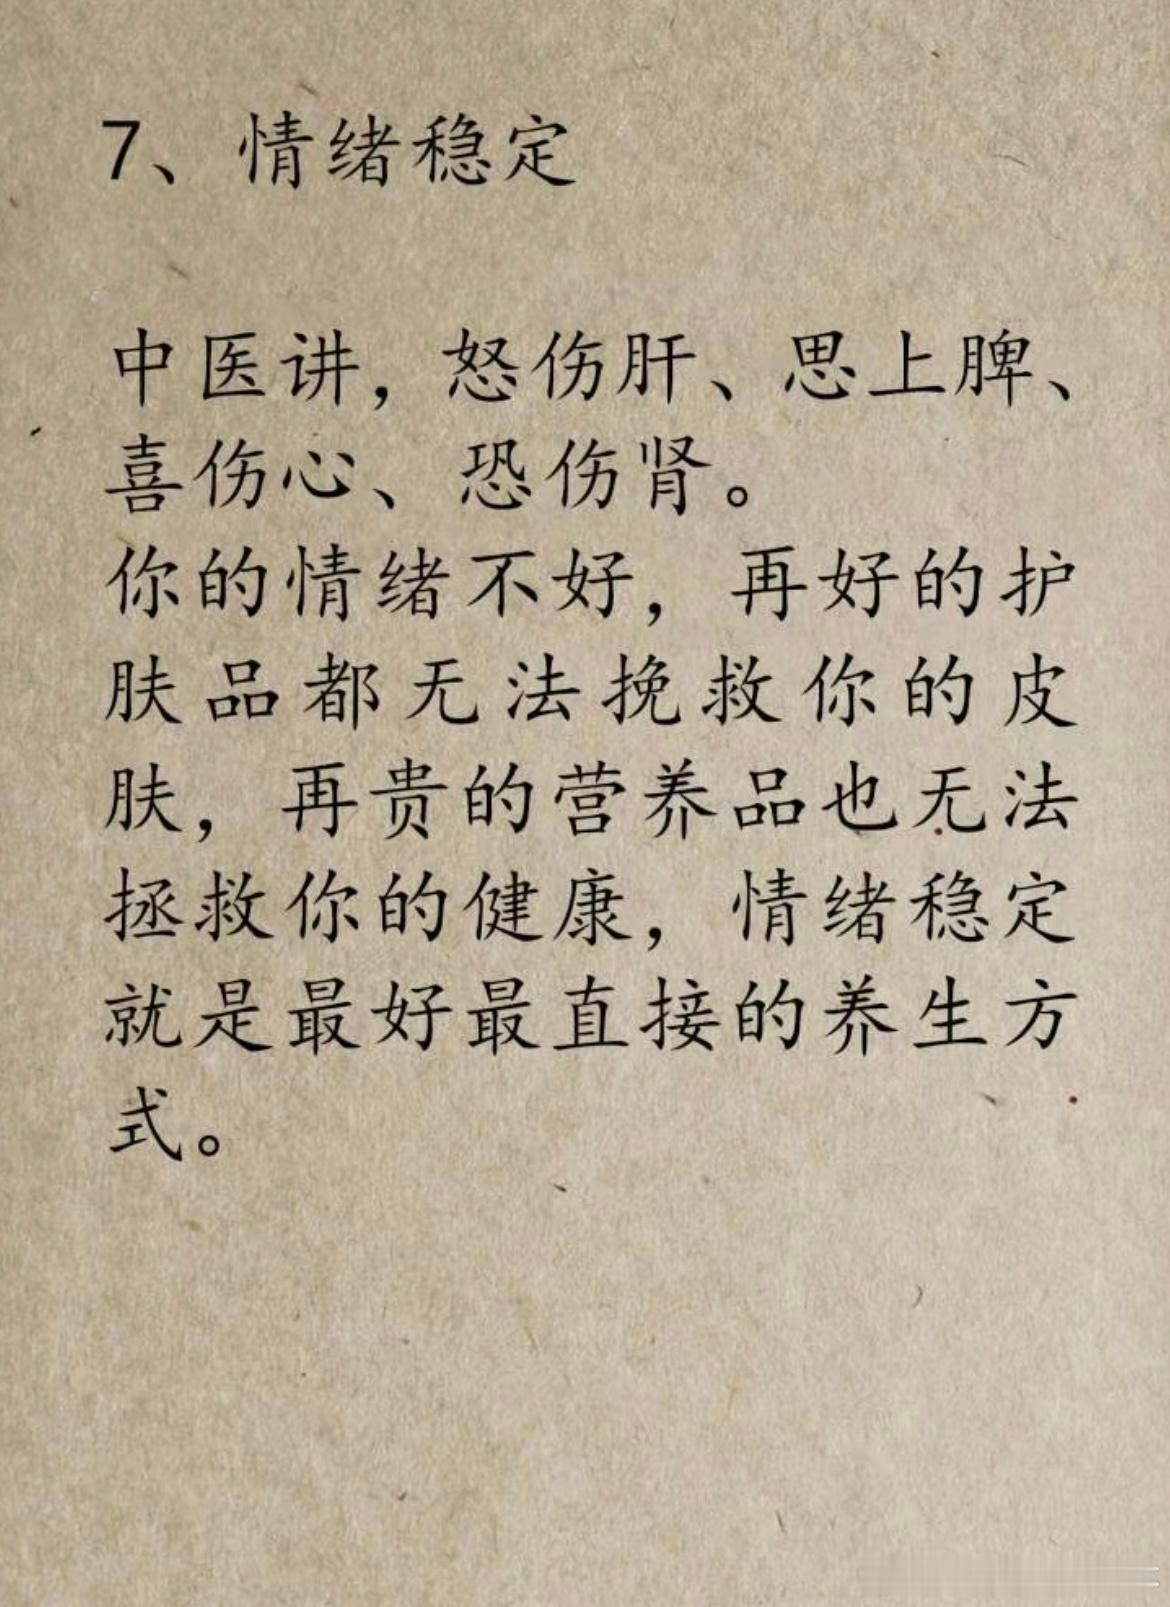 7、情绪稳定
中医讲，怒伤肝、思上脾、
喜伤心、恐伤肾。
你的情绪不好，再好的护
肤品都无法挽救你的皮
肤，再贵的营养品也无法
拯救你的健康，情绪稳定
就是最好最直接的养生方
式。